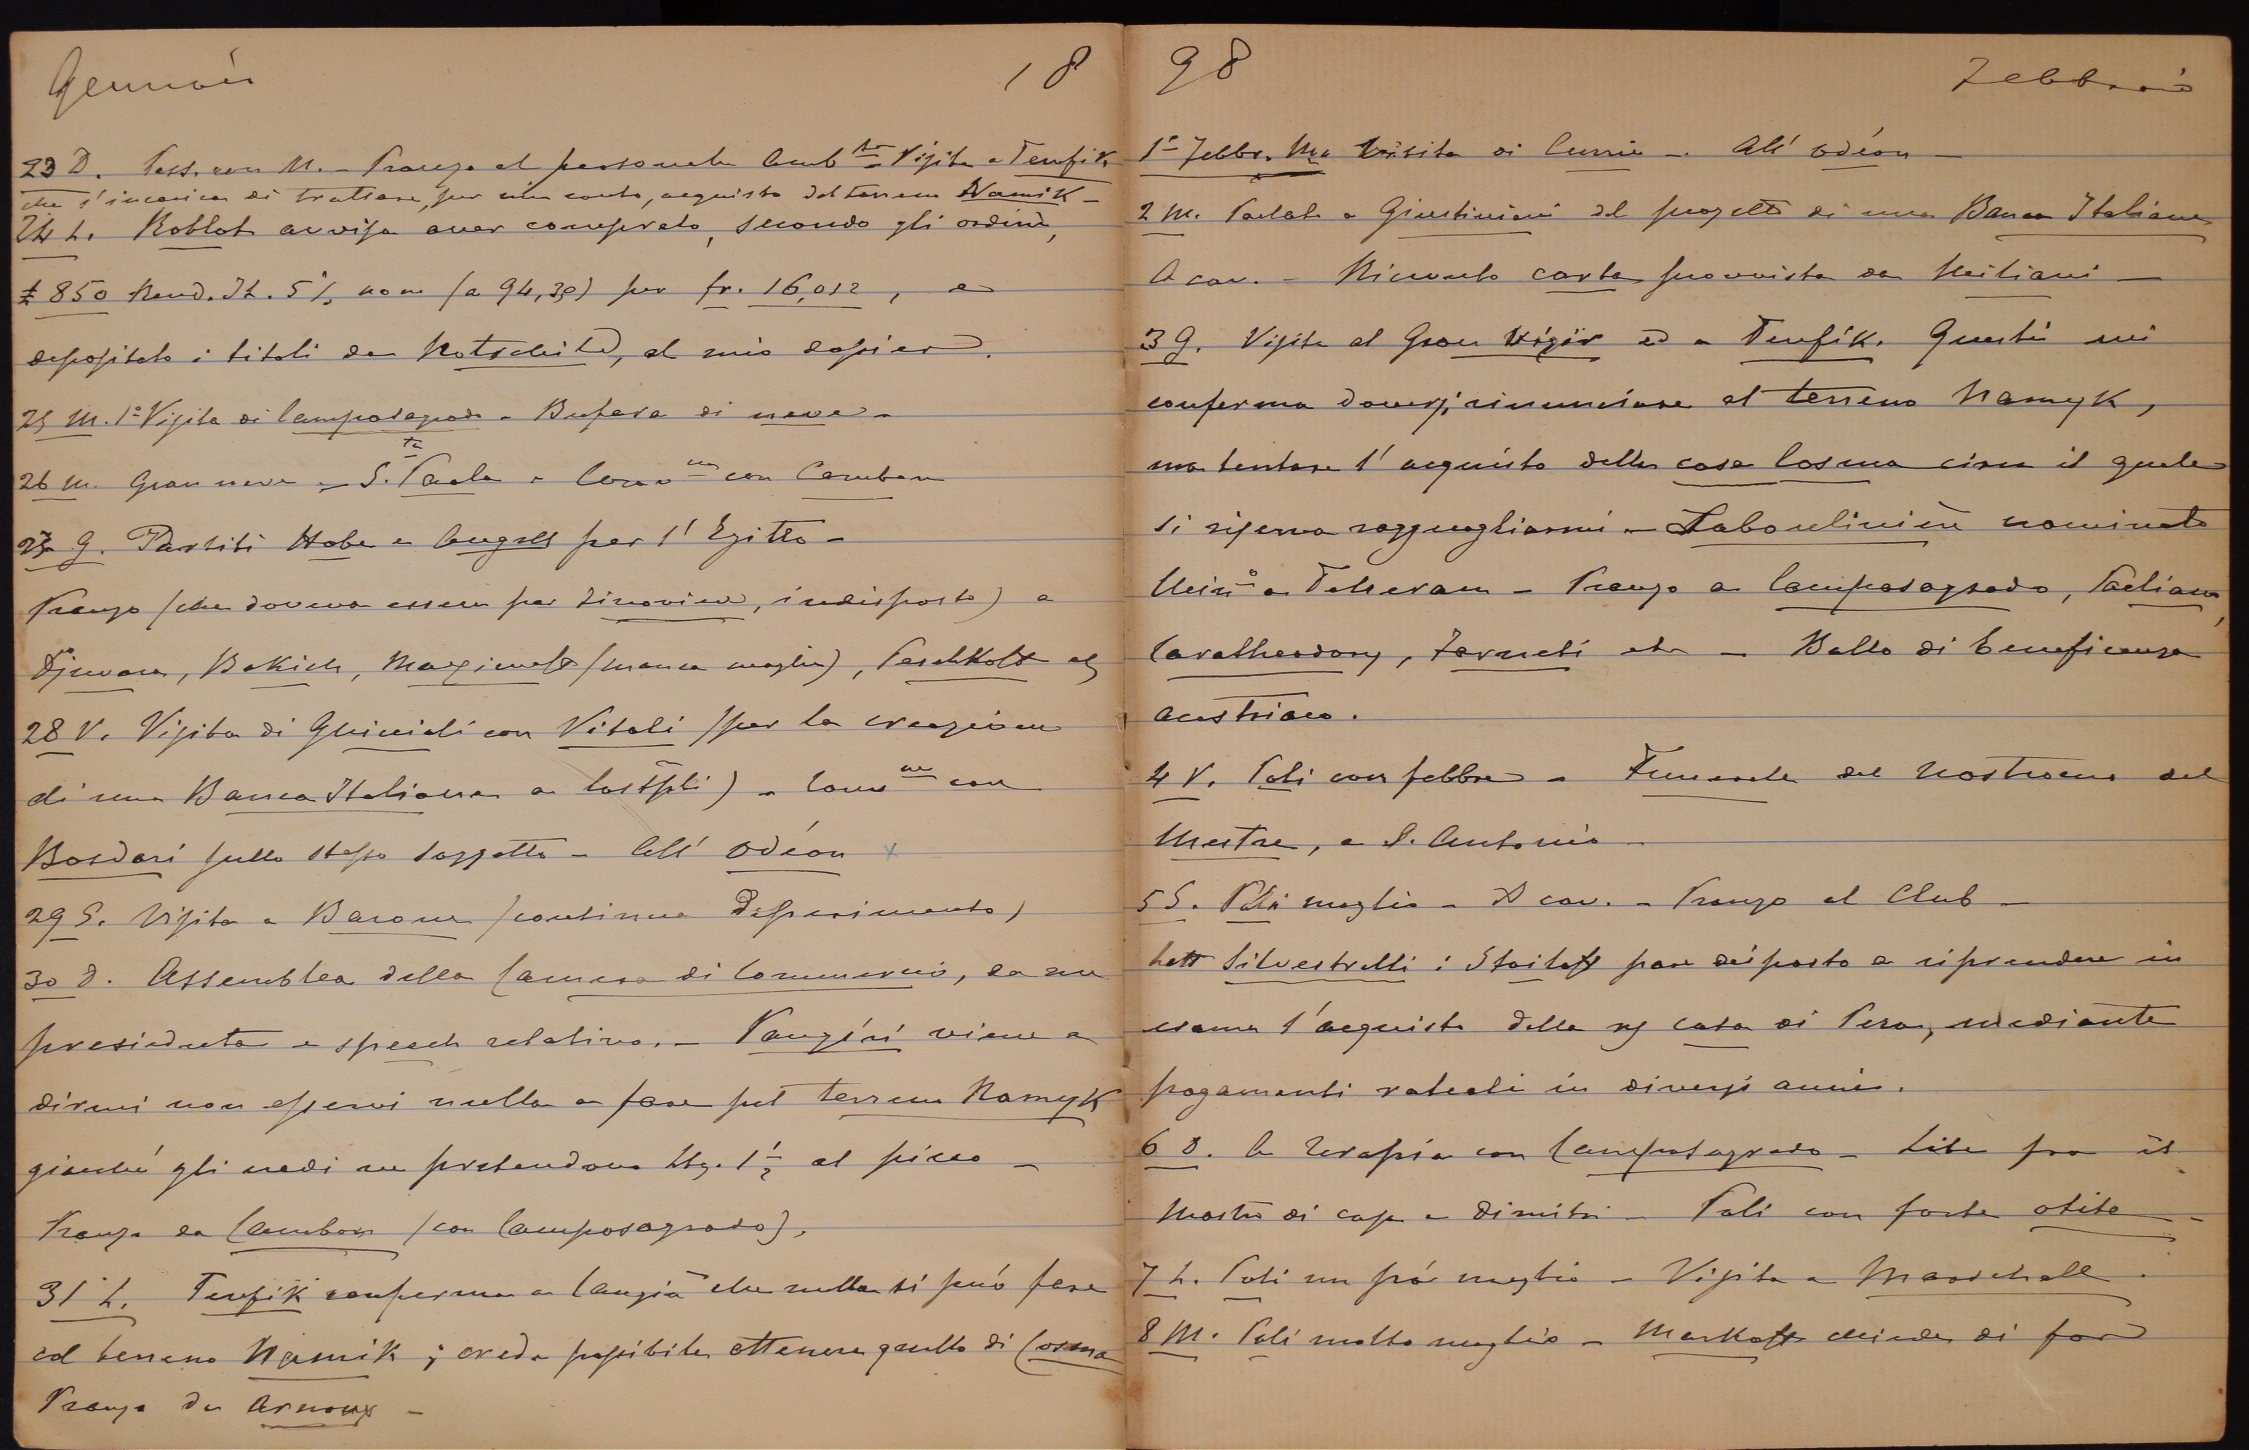 Gennaio 18
23 D. Pass. con M. - Pranzo al personale Amb.ta - Visita a Teufik,
che s'incarica di trattare, per mio conto, acquisto del terreno Namik -
24 L. Roblot avvisa aver comperato, secondo gli ordini,
850 Rend. It. 5% nom (a 94,30) per fr. 16,012, e
depositato i titoli da Rotschild, al mio dossier.
25 M. 1a Visita di Camposagrado - Bufera di neve -
26 M. Gran neve - S.ta Paola - Conv.ne con Cambon
27 G. Partiti Hobe e Cangelli per l'Egitto -
Pranzo (che doveva essere per Zinoview, indisposto) a
Djuvara, Bakich, Maximoff (manca moglie), Peschkoff etc
28 V. Visita di Ghinidi con Vitali (per la creazione
di una Banca Italiana a Costpli) - Conv.ne con
Bosdari sullo stesso soggetto - All' Odéon x
29 S. Visita a Barone (continuo deperimento)
30 D. Assemblea della Camera di Commercio, da me
presieduta e speech relativo. - Pangiri viene a
dirmi non esservi nulla a fare pel terreno Namyk
giacché gli eredi ne pretendono Ltq. 1 1/2 al picco -
Pranzo da Cambon (con Camposagrado).
31 L. Teufik conferma a Cangià che nulla si può fare
col terreno Namik; crede possibile ottenere quello di Cosma
Pranzo da Arnoux -
98 Febbraio
1° Febbr. Ma Visita di Currie - All' Odéon -
2 M. Parlato a Giustiniani del progetto di una Banca Italiana
A cav. - Ricevuto carta provvista da Miliani -
3 G. Visita al Gran Vizir ed a Teufik. Questi mi
conferma doversi rinunciare al terreno Namyk,
ma tentare l'acquisto della casa Cosma circa il quale
si riserva ragguagliarmi - Laboulinière nominato
Min.o a Teheran - Pranzo a Camposagrado, Paeliano,
Caratheodory, Zarneti etc - Ballo di beneficenza
austriaco.
4 V. Poli con febbre - Funerale del nostromo del
Mestre, a S. Antonio -
5 S. Poli meglio - A cav. - Pranzo al Club -
Lett Silvestrelli: Stoiloff pare disposto a riprendere in
esame l'acquisto della casa di Pera, mediante
pagamenti rateali in diversi anni.
6 D. A Terapia con Camposagrado - Lite fra il
Mastro di casa e Dimitri - Poli con forte otite -
7 L. Poli un pò meglio - Visita a Marschall.
8 M. Poli molto meglio - Markoff chiede di far